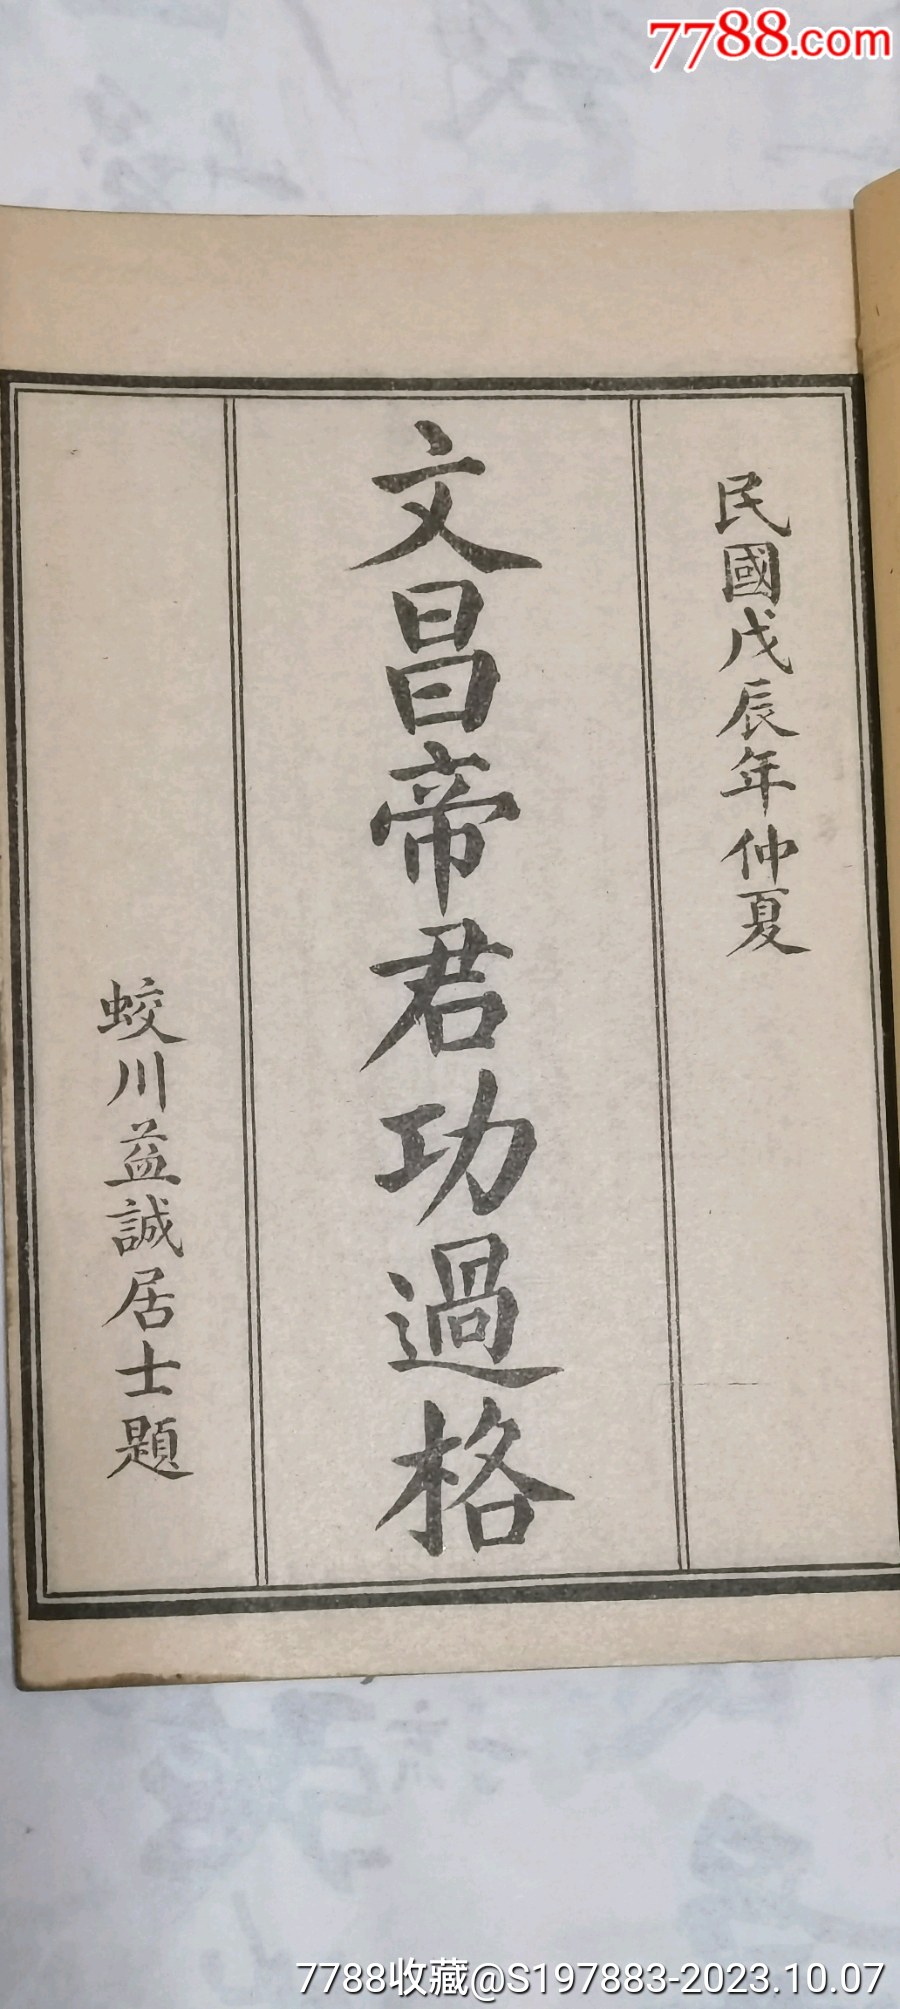 7788.com
民國戊辰年仲夏
文昌帝君功過格
蛟川益誠居士題
7788收藏@S197883-2023.10.07